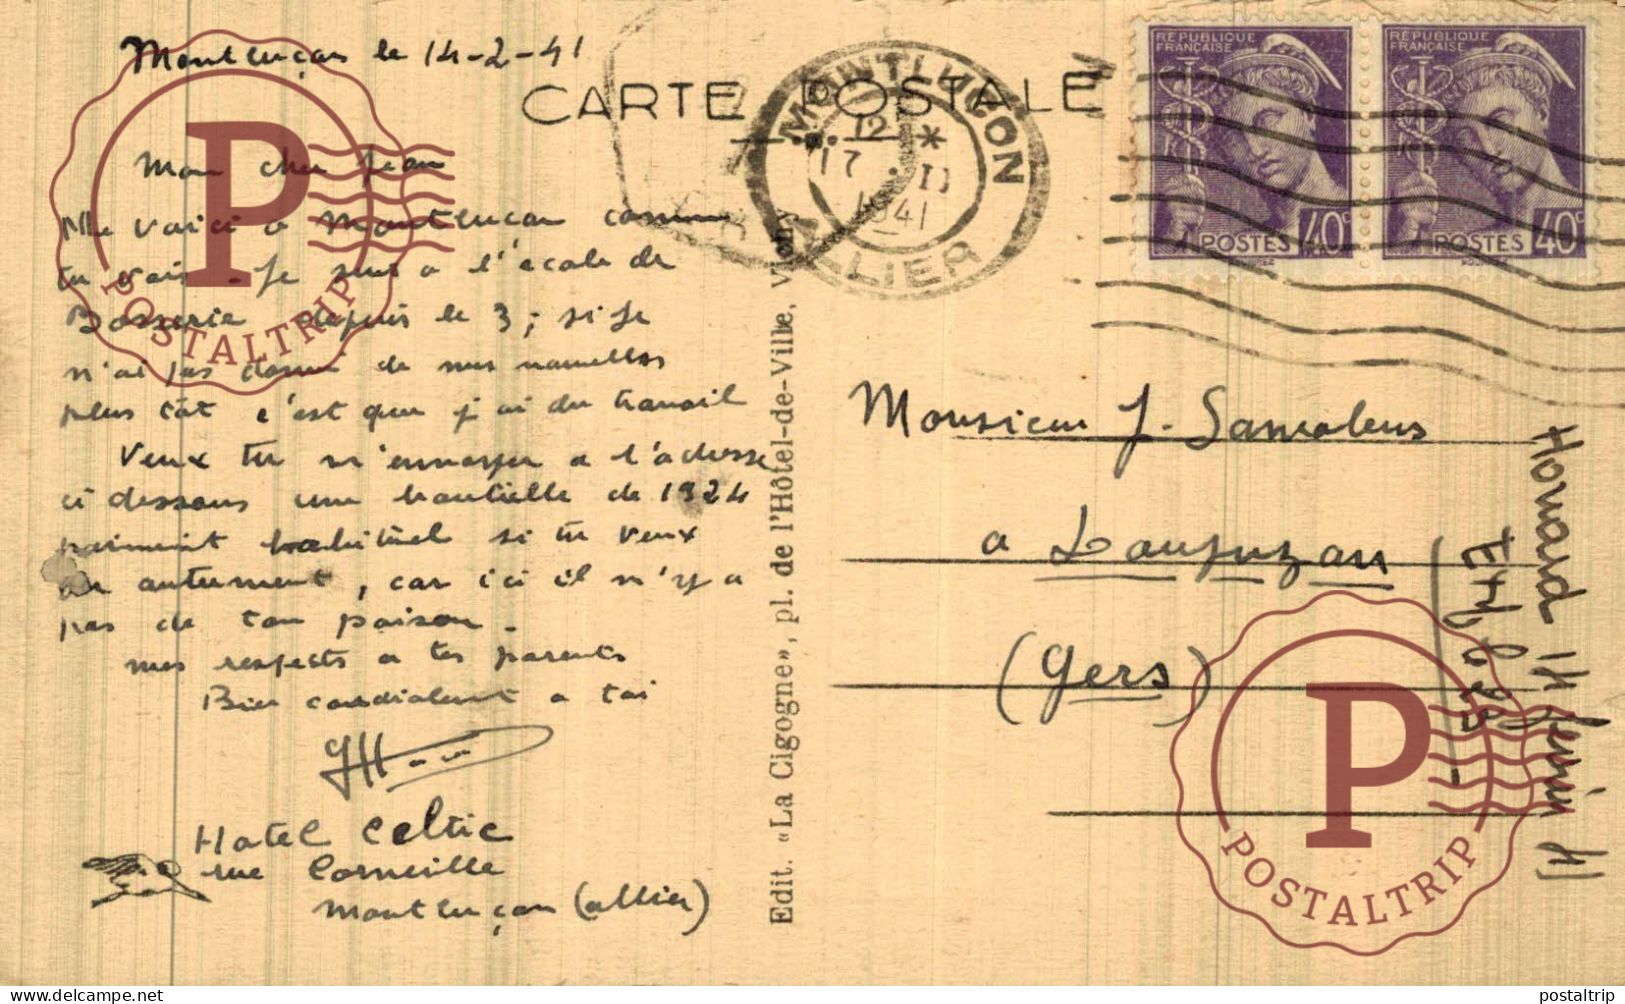 Montluçon le 14-2-41
CARTE POSTALE
MONTLUCON
12 *
17 II
1941
ALLIER
RÉPUBLIQUE FRANÇAISE
POSTES 40c
RÉPUBLIQUE FRANÇAISE
POSTES 40c
Mon cher Jean
Me voici a Montlucon comme
tu vois. Je suis a l'école de
depuis le 3 ; si je
n'ai pas donné de mes nouvelles
plus tôt c'est que j'ai du travail
Veux tu m'envoyer a l'adresse
ci dessous une bouteille de 1924
paiment habituel si tu veux
ou autrement, car ici il n'y a
pas de ton poison.
mes respects a tes parents
Bien cordialement a toi
Hotel Celtic
rue Corneille
Montluçon (allier)
Edit. «La Cigogne», pl. de l'Hôtel-de-Ville, Vichy
Monsieur J.
a Laujuzan
(Gers)
POSTALTRIP
POSTALTRIP
postaltrip
postaltrip